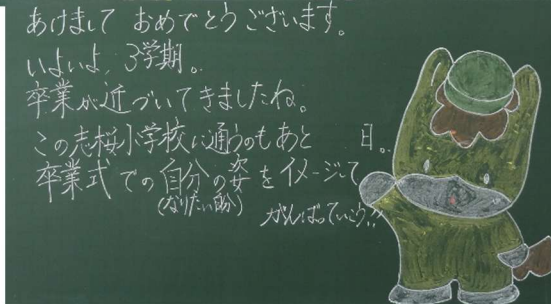 あけまして おめでとうございます。
いよいよ、3学期。
卒業が近づいてきましたね。
この志桜小学校に通うのもあと　　日。
卒業式での自分の姿をイメージして
(なりたい自分)
がんばっていこう!!